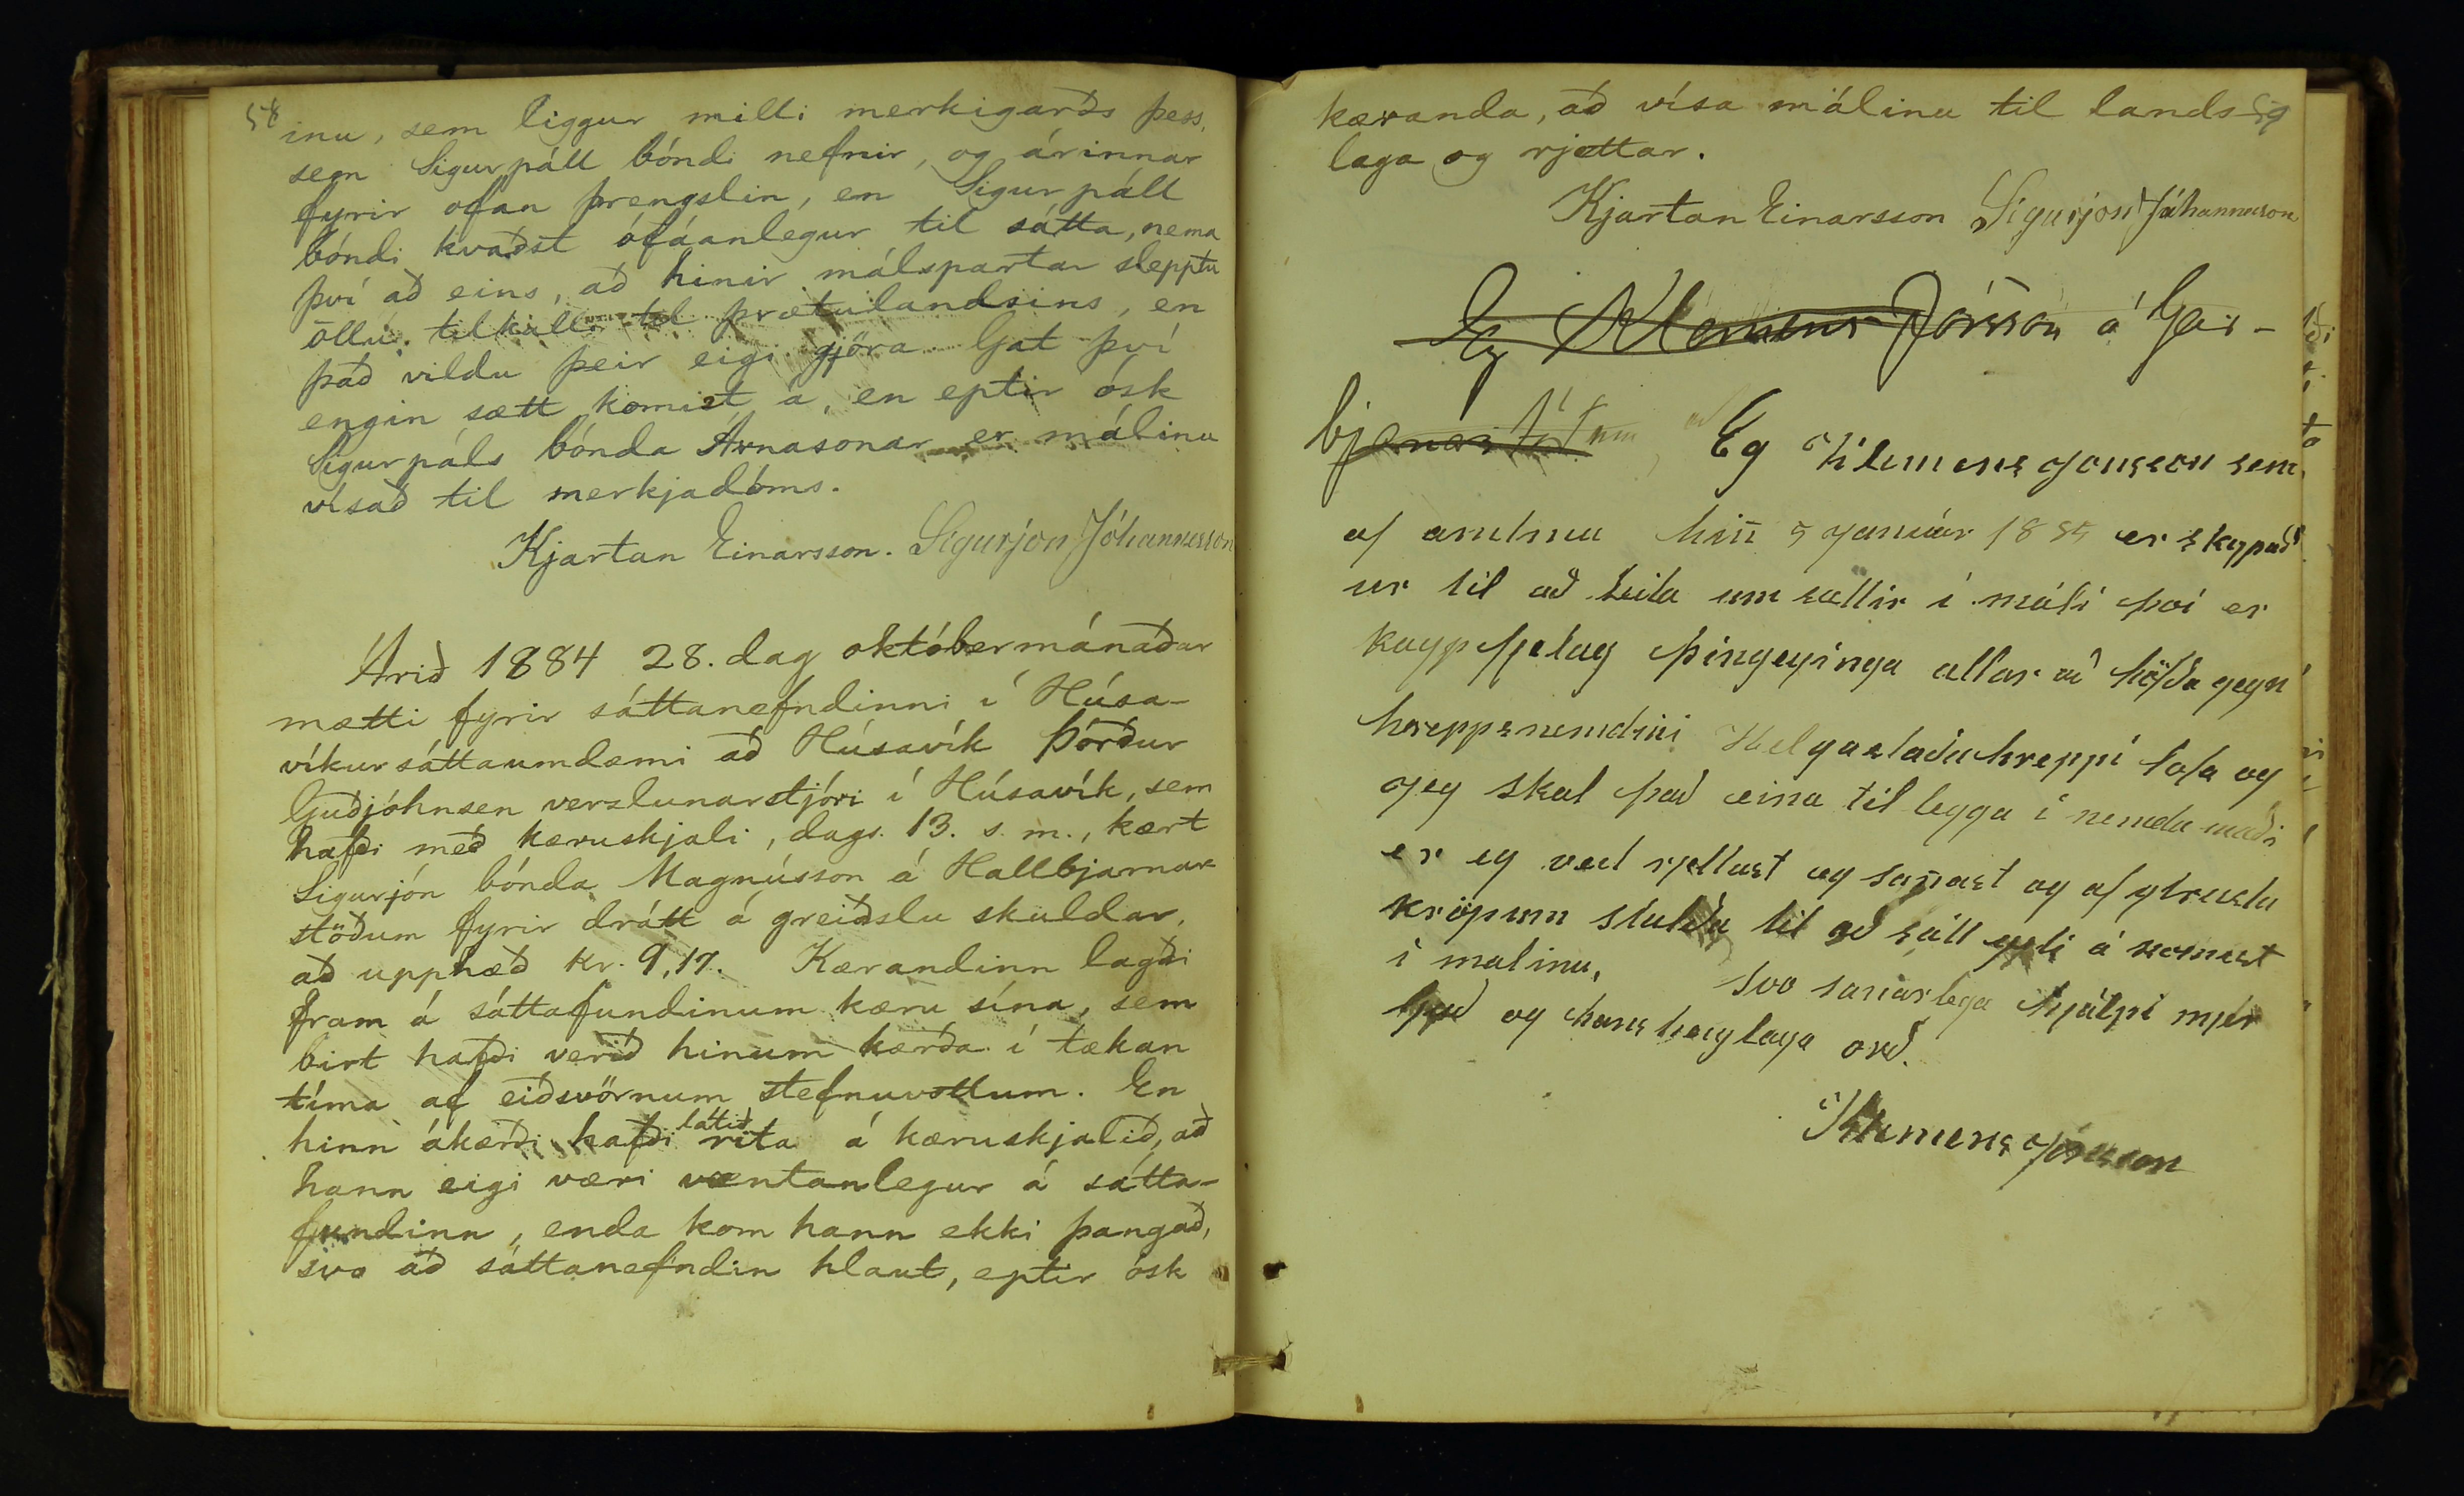 58
inu, sem liggur milli merkigarðs þess,
sem Sigurpáll bóndi nefnir, og árinnar
fyrir ofan þrengslin, en Sigurpáll
bóndi kvaðst ófáanlegur til sátta, nema
því að eins, að hinir málspartar sleppta
öllu tilkalli til þrætulandsins, en
það vildu þeir eigi gjöra. Gat því
engin sætt komist á, en eptir ósk
Sigurpáls bónda Árnasonar er málinu
vísað til merkjadóms.
Kjartan Einarsson. Sigurjón Jóhannesson
Árið 1884 28. dag októbermánaðar
mætti fyrir sáttanefndinni í Húsa-
víkursáttaumdæmi að Húsavík Þórður
Guðjóhnsen verzlunarstjóri í Húsavík, sem
hafði með kæruskjali, dags. 13. s. m., kært
Sigurjón bónda Magnússon á Hallbjarnar
stöðum fyrir drátt á greiðslu skuldar,
að upphæð kr. 9,17. Kærandinn lagði
fram á sáttafundinum kæru sína, sem
birt hafði verið hinum kærða í tækan
tíma af eiðsvörnum stefnuvottum. En
hinn ákærði hafði látið rita á kæruskjalið, að
hann eigi væri væntanlegur á sátta-
fundinn, enda kom hann ekki þangað,
svo að sáttanefndin hlaut, eptir ósk
59
kæranda, að vísa málinu til lands-
laga og rjettar.
Kjartan Einarsson Sigurjón Jóhannesson
Eg Klemens Jónsson á Geir-
bjarnar
Eg Klemens Jonsson sem
af amtinu hin 5 Januar 1885 er skypað
ur til að leita um sættir í máli því er
kaupfjelag Þingeyinga ætlar að höfða gegn
hreppsnemdini Helgastaðahreppi lofa og
Jeg skal það eina til leggja í nemdu máli
er eg veit rjettast og sanast og af ytrustu
kröpum stuðla til að sátt geti á komist
í malinu, Svo sanarlega hjálpi mjer
Guð og hans heyglaga orð.
Klemens Jónsson